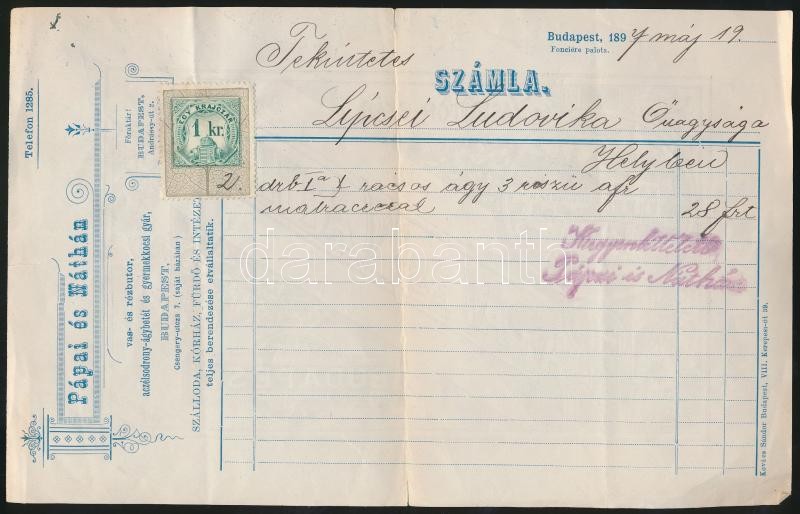 Budapest, 1897 máj 19.
Fonciére palota.
Tekintetes
SZÁMLA.
Lipcsei Ludovika Őnagysága
Helyben
2. drb Iª rácsos ágy 3 részü afr
matraczczal 28 frt
Pápai és Náthán
EGY KRAJCZÁR
1 kr.
Telefon 1285.
Pápai és Náthán
Főraktár:
BUDAPEST,
Andrássy-út 2.
vas- és rézbutor,
aczélsodrony-ágybetét és gyermekkocsi gyár,
BUDAPEST,
Csengery-utcza 7. (saját házában)
SZÁLLODA, KÓRHÁZ, FÜRDŐ ÉS INTÉZET
teljes berendezése elvállaltatik.
Kovács Sándor Budapest, VIII. Kerepesi-út 39.
darabanth